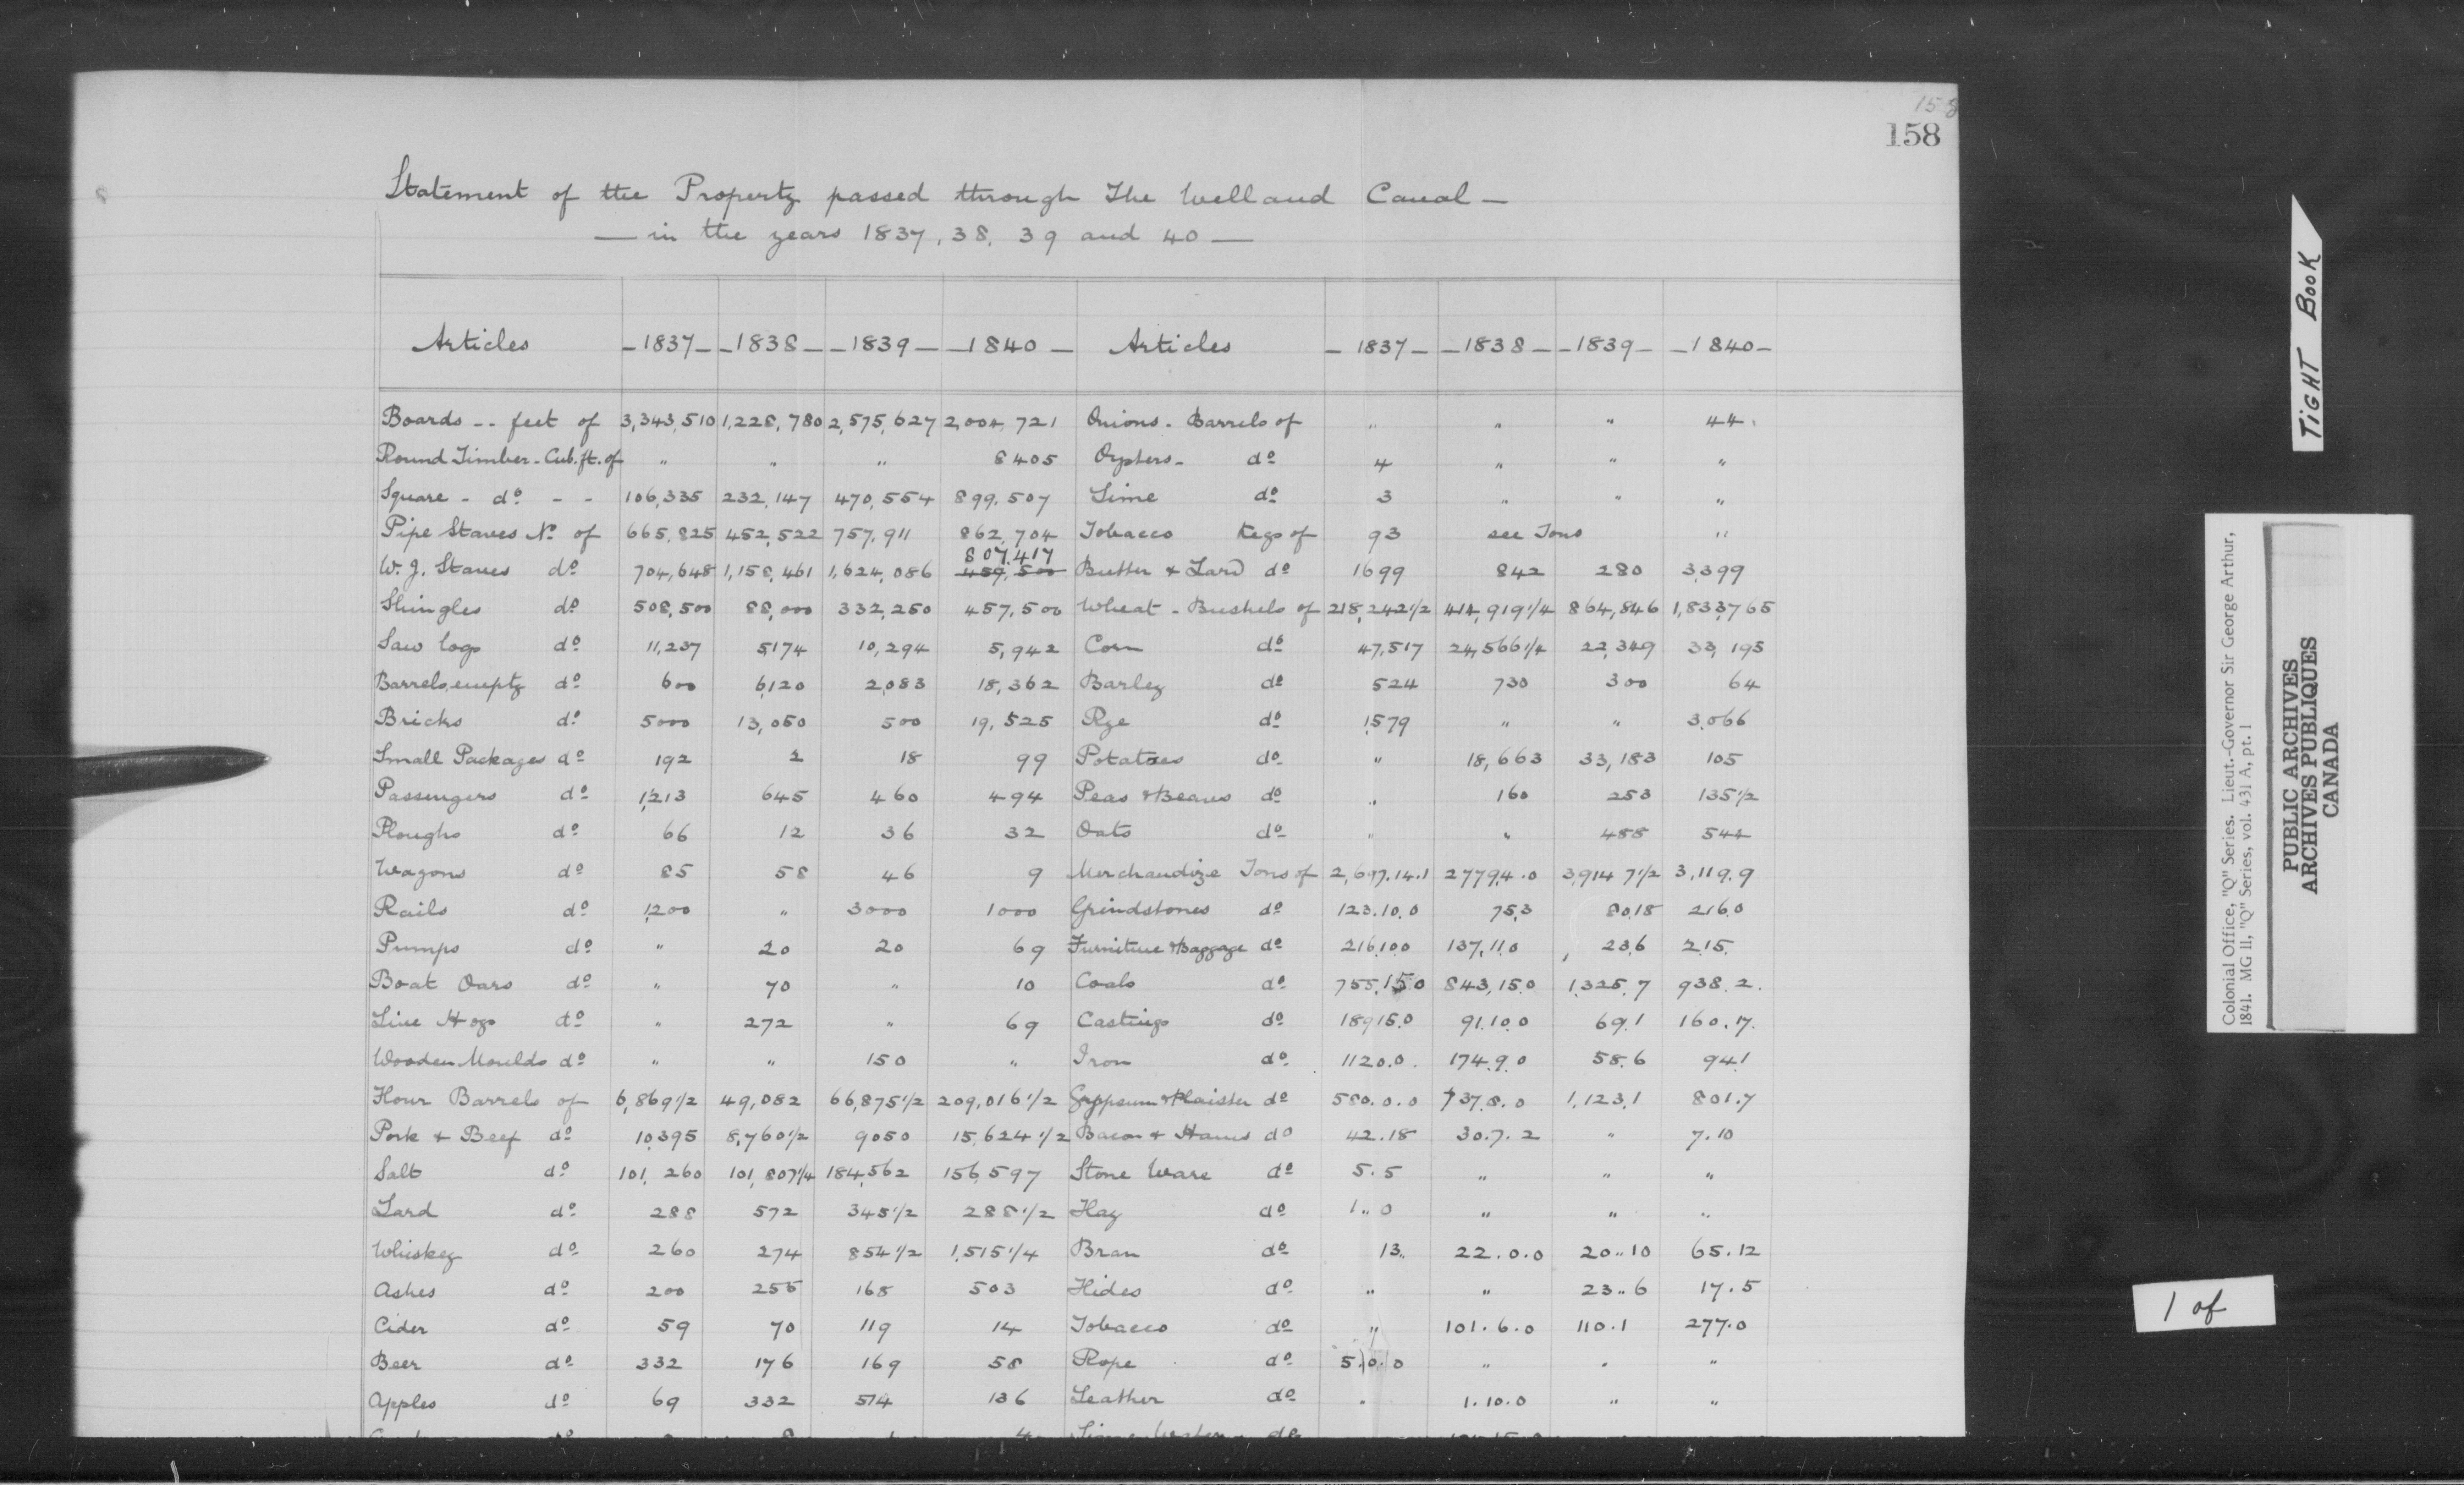 158
158
Statement of the Property passed through The Welland Canal —
— in the years 1837, 38, 39 and 40 —
Articles — 1837 — — 1838 — — 1839 — — 1840 — Articles — 1837 — — 1838 — — 1839 — — 1840 —
Boards -- feet of 3,343,510 1,228,780 2,575,627 2,004,721 Onions - Barrels of " " " 44
Round Timber - Cub. ft. of " " " 8405 Oysters - do 4 " " "
Square - do - - 106,335 232,147 470,554 899,507 Lime do 3 " " "
Pipe Staves No of 665,825 452,522 757,911 862,704 Tobacco Kegs of 93 see Tons "
W. J. Staves do 704,648 1,158,461 1,624,086 807,417 459,500 Butter & Lard do 1699 842 280 3,399
Shingles do 508,500 88,000 332,250 457,500 Wheat - Bushels of 218,242 1/2 414,919 1/4 864,846 1,833,765
Saw logs do 11,237 5,174 10,294 5,942 Corn do 47,517 24,566 1/4 22,349 33,195
Barrels, empty do 600 6,120 2,083 18,362 Barley do 524 730 300 64
Bricks do 5000 13,050 500 19,525 Rye do 1,579 " " 3,066
Small Packages do 192 2 18 99 Potatoes do " 18,663 33,183 105
Passengers do 1,213 645 460 494 Peas & Beans do " 160 253 135 1/2
Ploughs do 66 12 36 32 Oats do " " 488 544
Wagons do 85 58 46 9 Merchandize Tons of 2,697.14.1 2779,4.0 3,914 7 1/2 3,119.9
Rails do 1,200 " 3000 1000 Grindstones do 123.10.0 75,3 80,18 216.0
Pumps do " 20 20 69 Furniture & Baggage do 216.10.0 137,11.0 236 215.
Boat Oars do " 70 " 10 Coals do 755.15.0 843,15.0 1,325.7 938.2.
Live Hogs do " 272 " 69 Castings do 189 15.0 91.10.0 69.1 160.17.
Wooden Moulds do " " 150 " Iron do 112 0.0. 174.9.0 58.6 94.1
Flour Barrels of 6,869 1/2 49,082 66,875 1/2 209,016 1/2 Gypsum & Plaister do 580.0.0 737.8.0 1,123,1 801.7
Pork & Beef do 10,395 8,760 1/2 9050 15,624 1/2 Bacon & Hams do 42.18 30.7.2 " 7.10
Salt do 101,260 101,807 1/4 184,562 156,597 Stone Ware do 5.5 " " "
Lard do 288 572 345 1/2 288 1/2 Hay do 1..0 " " "
Whiskey do 260 274 854 1/2 1,515 1/4 Bran do 13.. 22.0.0 20..10 65.12
Ashes do 200 255 168 503 Hides do " " 23..6 17.5
Cider do 59 70 119 14 Tobacco do " 101.6.0 110.1 277.0
Beer do 332 176 169 58 Rope do 5.0.0 " " "
Apples do 69 332 574 136 Leather do " 1.10.0 " "
TIGHT BOOK
Colonial Office, "Q" Series. Lieut.-Governor Sir George Arthur,
1841. MG 11, "Q" Series, vol. 431 A, pt. 1
PUBLIC ARCHIVES
ARCHIVES PUBLIQUES
CANADA
1 of